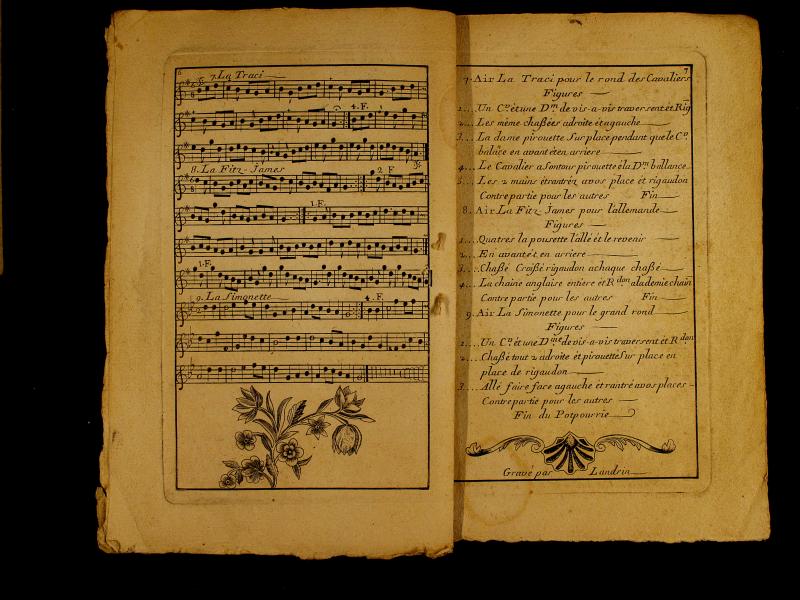 6
7. La Traci
4. F.
8. La Fitz-James
2 F
1. F.
1. F.
9. La Simonette
4. F.
7
7. Air La Traci pour le rond des Cavaliers
Figures
1.... Un C.er et une D.me de vis-a-vis traversent et Rig
2.... Les même chaßées adroite et agauche
3.... La dame pirouette Sur place pendant que le C.er
balâce en avant et en arriere
4.... Le Cavalier a Son tour pirouette é la D.me ballance
5.... Les 2 mains étrantréz avos place et rigaudon
Contrepartie pour les autres Fin
8. Air La Fitz James pour l'allemande
Figures
1.... Quatres la pousette l'allé et le revenir
2.... En avant et en arriere
3.... Chaßé Croißé rigaudon achaque chaßé
4.... La chaine anglaise entiere et R.don ala demie chain
Contre partie pour les autres Fin
9. Air La Simonette pour le grand rond
Figures
1.... Un C.er et une D.me de vis-a-vis traversent et R.don
2.... Chaßé tout 2 adroite et pirouette Sur place en
place de rigaudon
3.... Allé faire face agauche et rantré avos places
Contrepartie pour les autres
Fin du Potpourrie
Gravé par Landrin